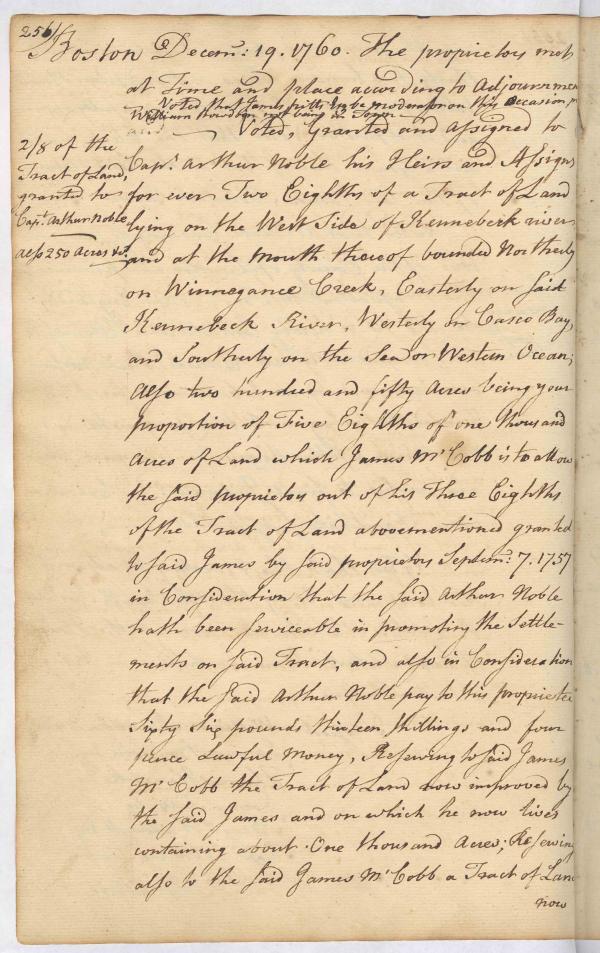 256
Boston Decem: 19. 1760. The proprietors met
at Time and place according to Adjournmen
Voted that James pitts Esq be moderator on this Occasion
William Bowdoin not being in Town
Voted, Granted and assigned to
2/8 of the
Tract of Land,
granted to
Capt. Arthur Noble
also 250 Acres &c.
Capt. Arthur Noble his Heirs and Assigns
for ever Two Eighths of a Tract of Land
lying on the West Side of Kennebeck river
and at the Mouth thereof bounded Northerly
on Winnegance Creek, Easterly on said
Kennebeck River, Westerly on Casco Bay,
and Southerly on the Sea or Western Ocean;
Also two hundred and fifty Acres being your
proportion of Five Eighths of one thousand
Acres of Land which James McCobb is to allow
the said proprietors out of his Three Eighths
of the Tract of Land abovementioned granted
to said James by said proprietors Septem: 7. 1757
in Consideration that the said Arthur Noble
hath been serviceable in promoting the Settle-
ments on said Tract, and also in Consideration
that the said Arthur Noble pay to this propriete
Sixty Six pounds thirteen shillings and four
pence Lawful Money, Reserving to said James
McCobb the Tract of Land now improved by
the said James and on which he now lives
containing about One thousand Acres; Reserving
also to the said James McCobb a Tract of Land
now